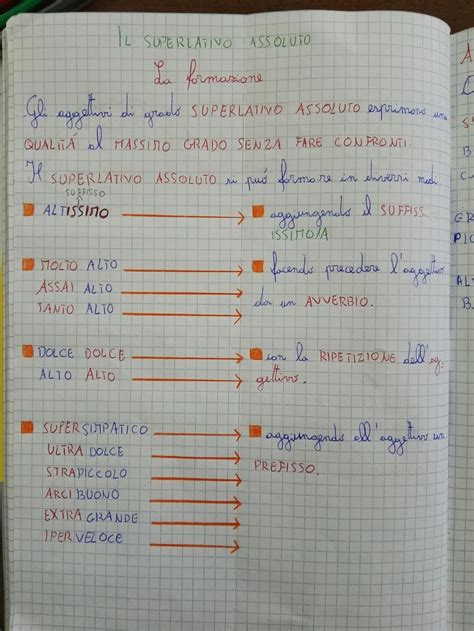 IL SUPERLATIVO ASSOLUTO
La formazione
Gli aggettivi di grado SUPERLATIVO ASSOLUTO esprimono una
QUALITÁ al MASSIMO GRADO SENZA FARE CONFRONTI.
Il SUPERLATIVO ASSOLUTO si puó formare in diversi modi.
SUFFISSO
ALTISSIMO
aggiungendo il SUFFISS.
ISSIMO/A
MOLTO ALTO
facendo precedere l'aggettivo
ASSAI ALTO
da un AVVERBIO.
TANTO ALTO
DOLCE DOLCE
con la RIPETIZIONE dell'ag-
ALTO ALTO
gettivo.
SUPERSIMPATICO
aggiungendo all'aggettivo un
ULTRA DOLCE
PREFISSO.
STRAPICCOLO
ARCI BUONO
EXTRA GRANDE
IPER VELOCE